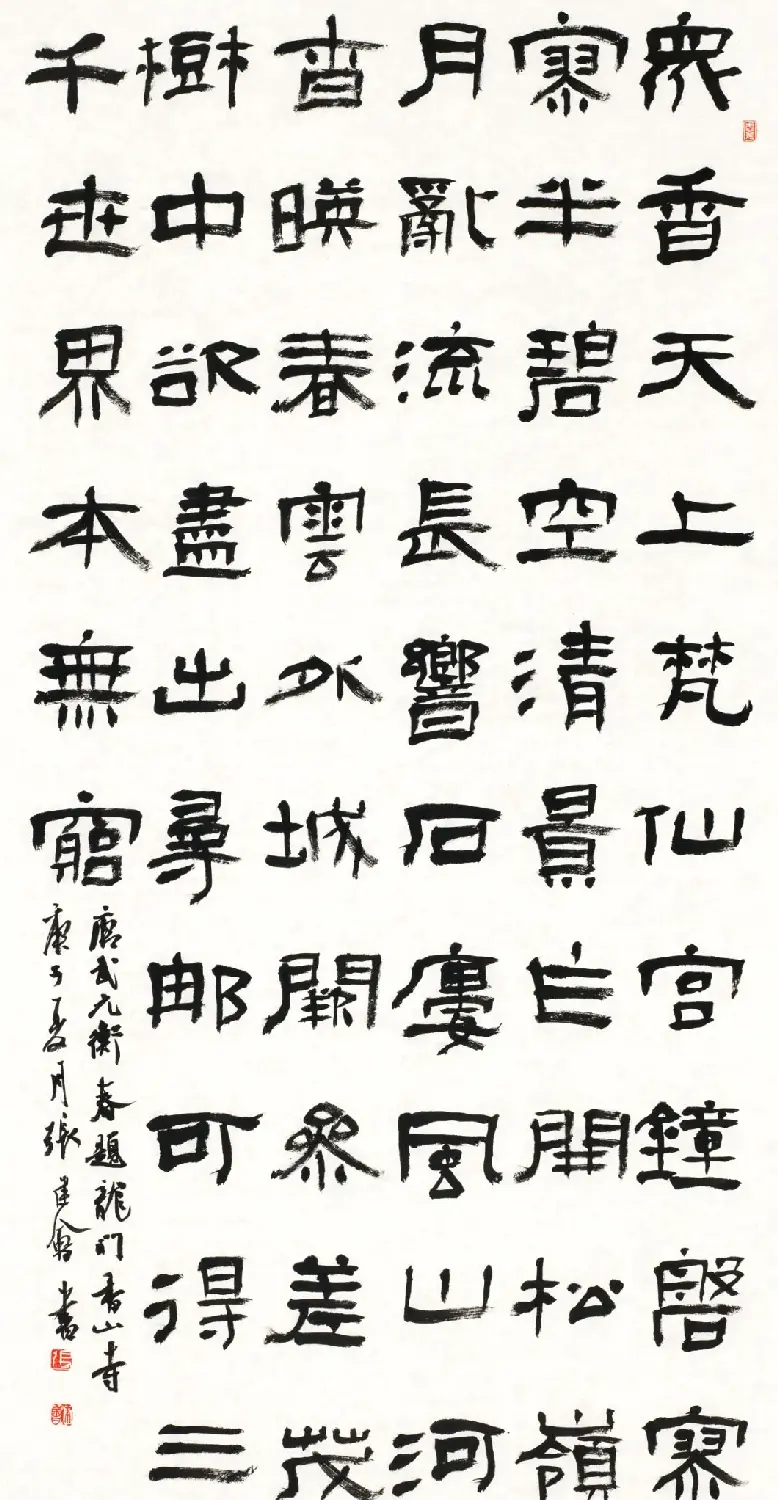 眾香天上梵仙宮鐘磬寥
寥半碧空清景乍開松嶺
月亂流長響石廔風山河
杳暎春雲外城闕參差茂
樹中欲盡出尋那可得三
千世界本無窮
唐武元衡春題龍門香山寺
庚子夏月張建會書